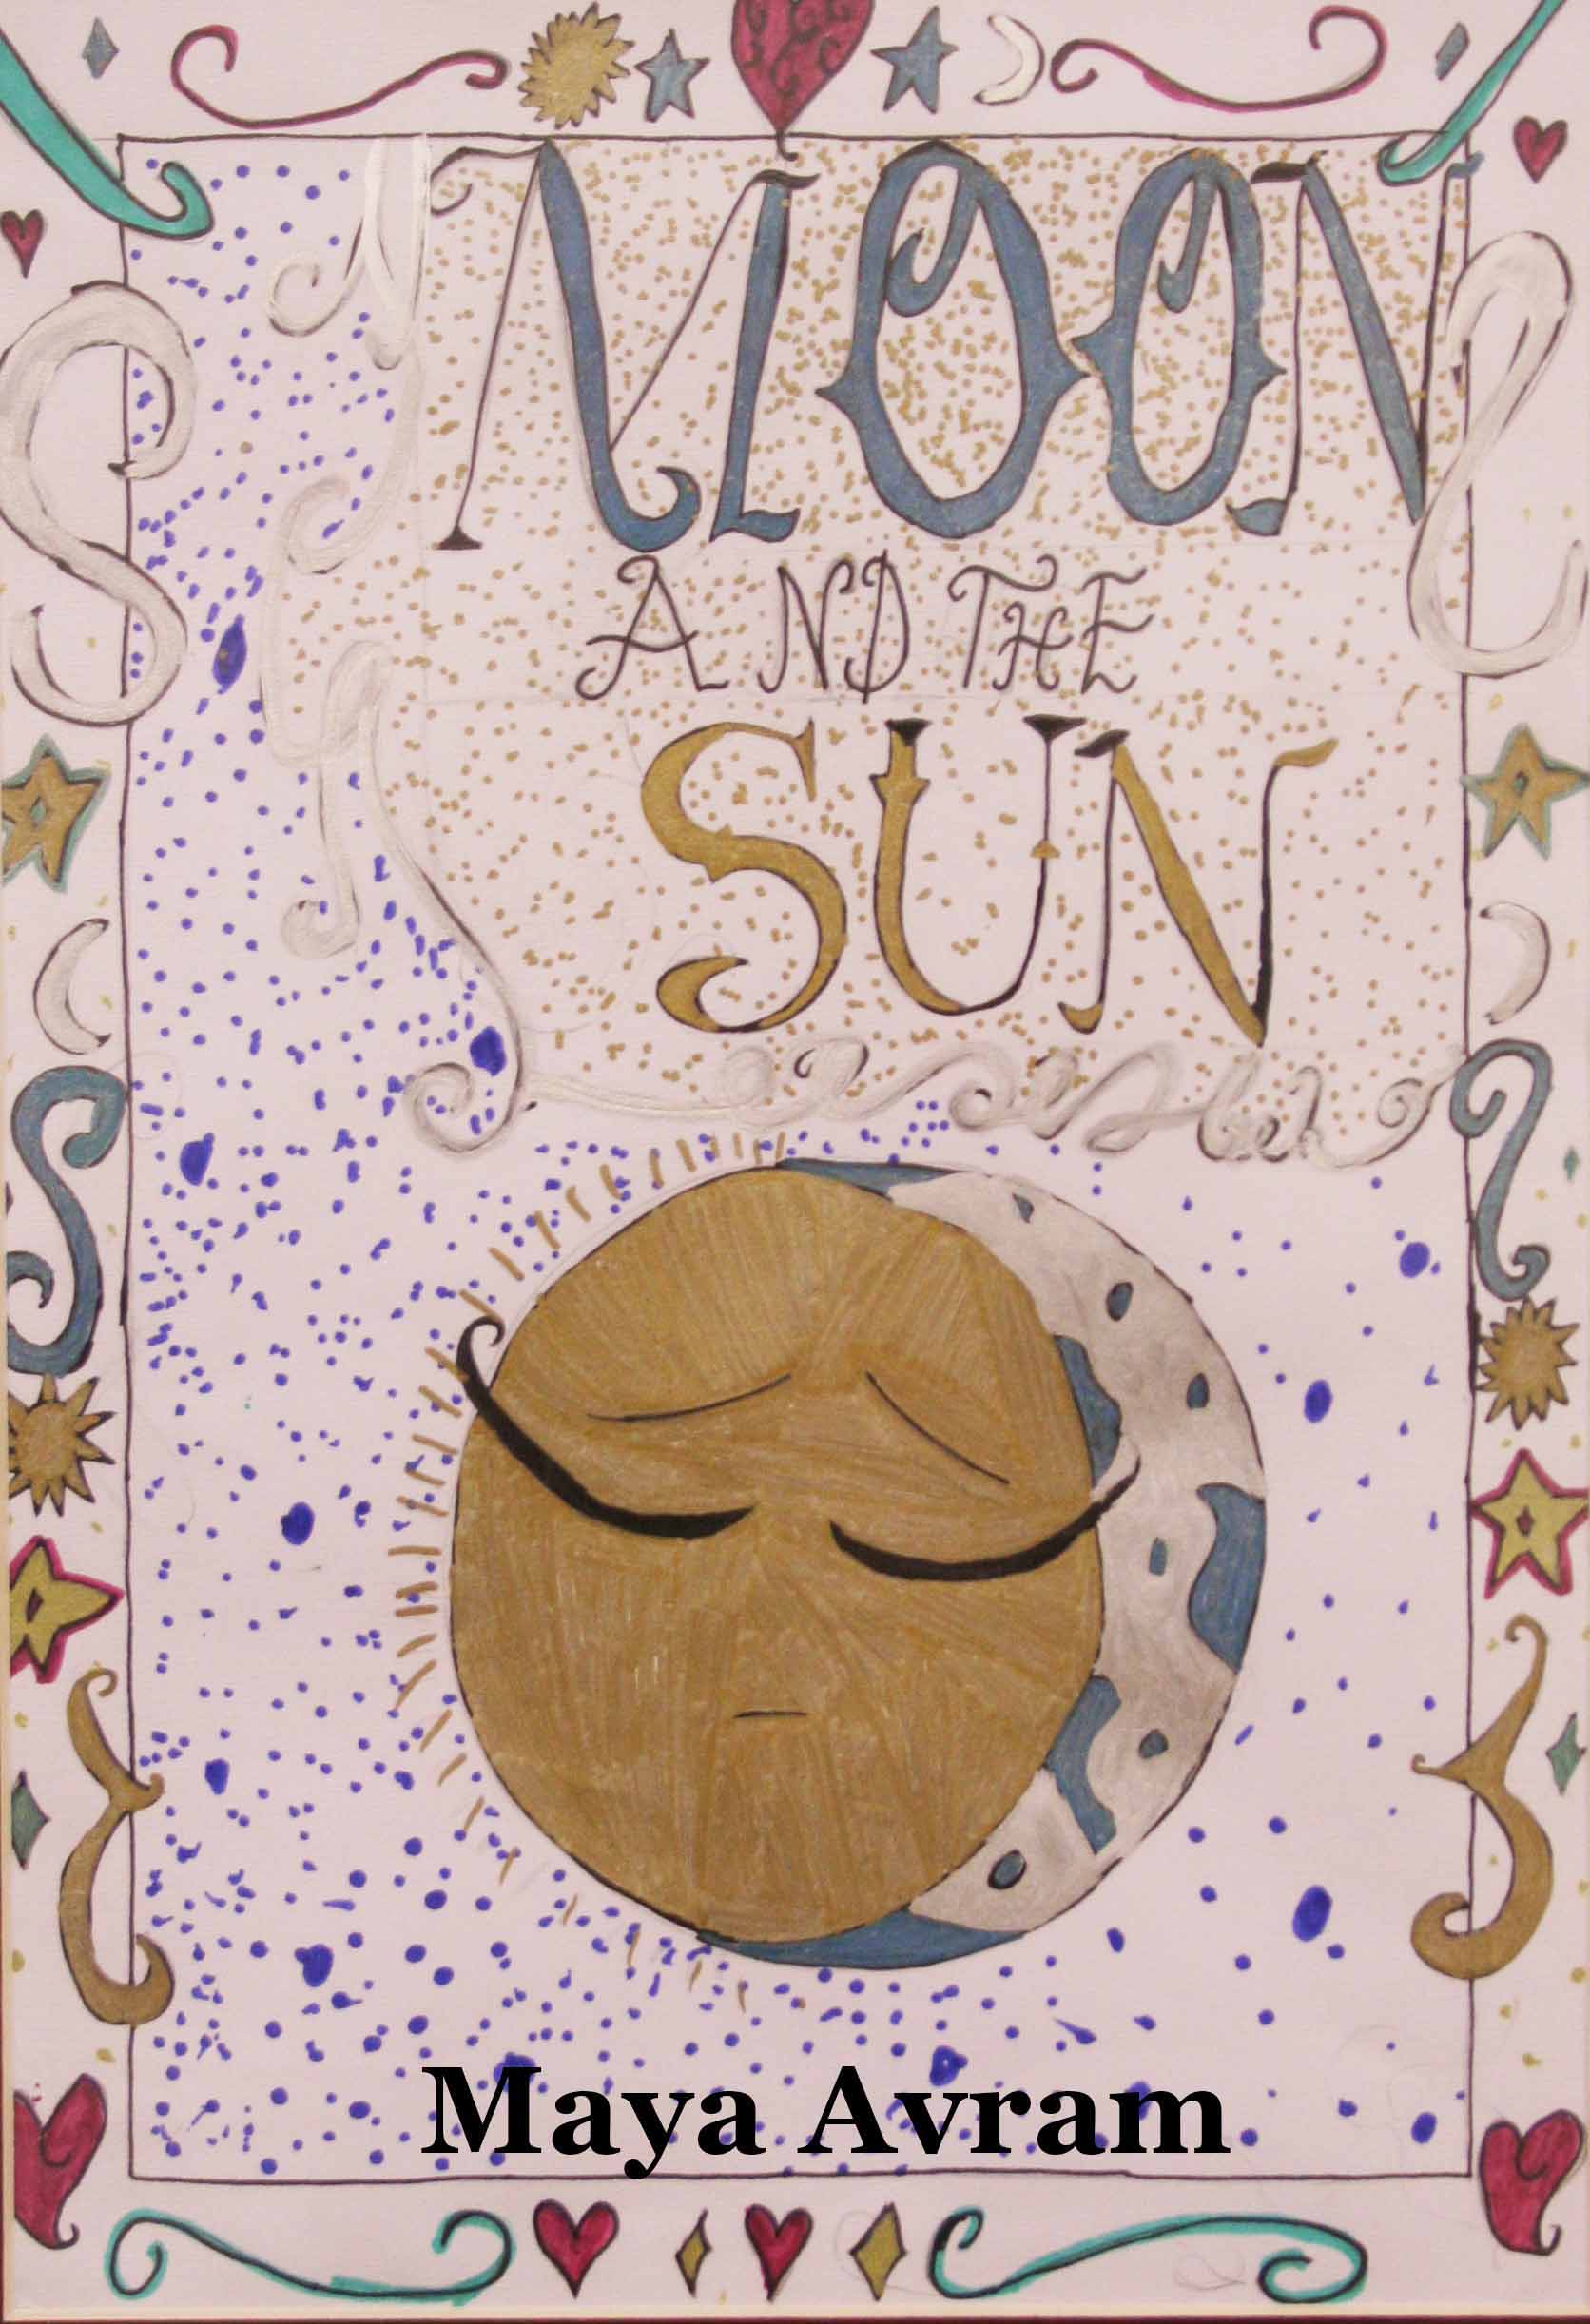 MOON
AND THE
SUN
Maya Avram